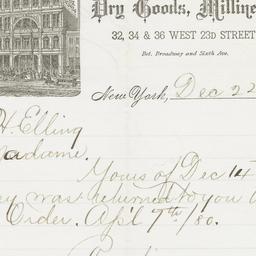 Dry Goods, Milline
32, 34 & 36 WEST 23D STREET
Bet. Broadway and Sixth Ave.
New York, Dec 22
H. Elling
adame.
Yours of Dec 14
ey was returned to you
Order. Apl 7th /80.